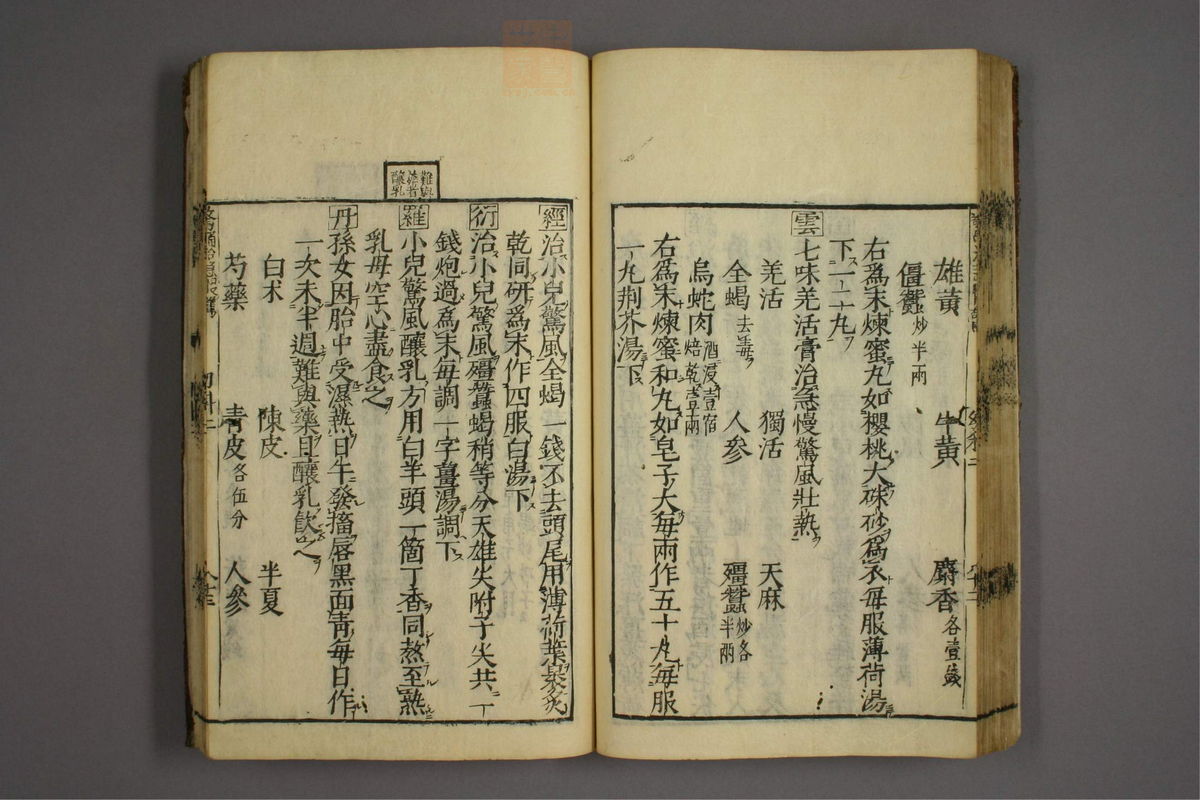 雄黃 牛黃 麝香各壹錢
僵蠶炒半兩
右為末煉蜜丸如櫻桃大硃砂為衣每服薄荷湯
下一二十丸
雲七味羌活膏治急慢驚風壯熱
羌活 獨活 天麻
全蝎去毒 人參 殭蠶炒各半兩
烏蛇肉酒浸壹宿焙乾壹兩
右為末煉蜜和丸如皂子大每兩作五十丸每服
一丸荊芥湯下
難與藥者釀乳
經治小兒驚風全蝎一錢不去頭尾用薄荷葉裹炙
乾同研為末作四服白湯下
衍治小兒驚風殭蠶蝎稍等分天雄尖附子尖共一
錢炮過為末每調一字薑湯調下
羅小兒驚風釀乳方用白羊頭一箇丁香同熬至熟
乳母空心盡食之
丹孫女因胎中受濕熱日午發搐唇黑面靑每日作
一次未半週難與藥且釀乳飲之
白朮 陳皮 半夏
芍藥 靑皮各伍分 人參